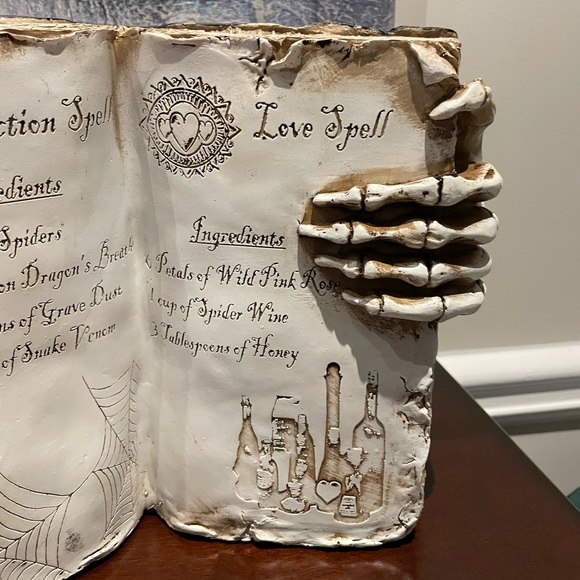 ction Spell
edients
Spiders
on Dragon's Breath
ns of Grave Dust
of Snake Venom
Love Spell
Ingredients
6 Petals of Wild Pink Rose
1 cup of Spider Wine
3 Tablespoons of Honey